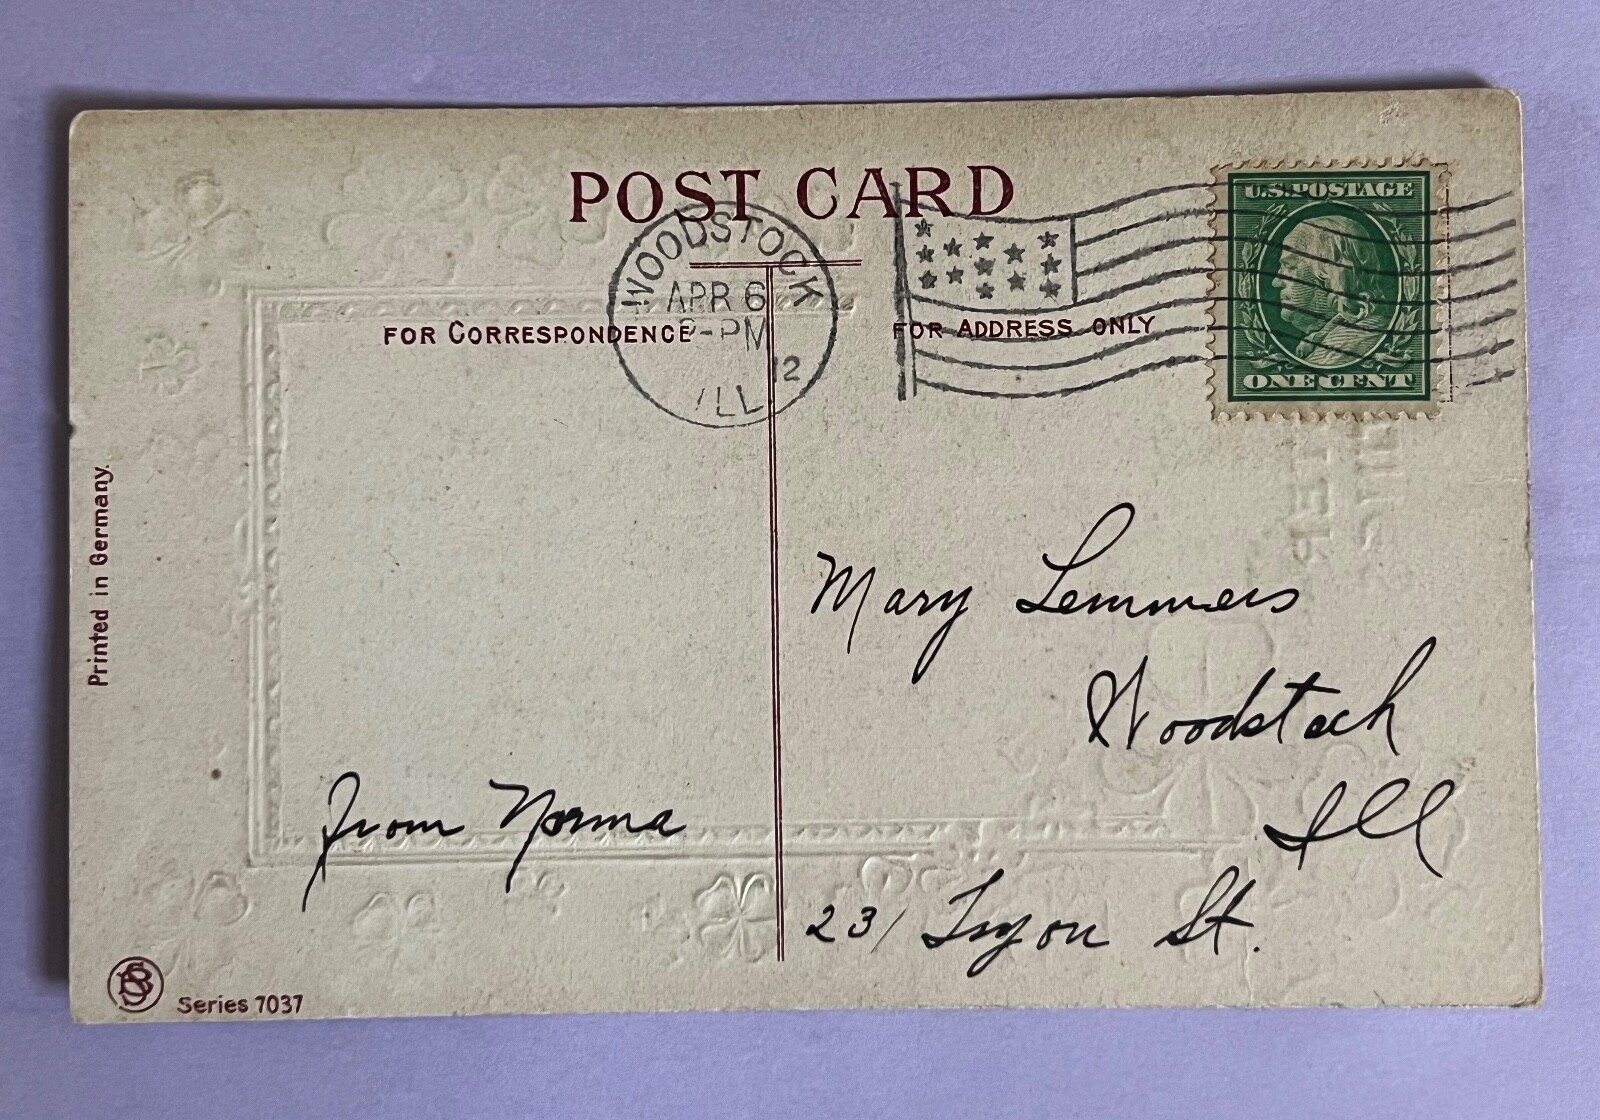 POST CARD
U.S. POSTAGE
WOODSTOCK
APR 6
-PM
12
ILL
FOR CORRESPONDENCE
FOR ADDRESS ONLY
ONE CENT
Printed in Germany.
Mary Lemmers
Woodstock
Ill
from Norma
231 Tryon St.
Series 7037